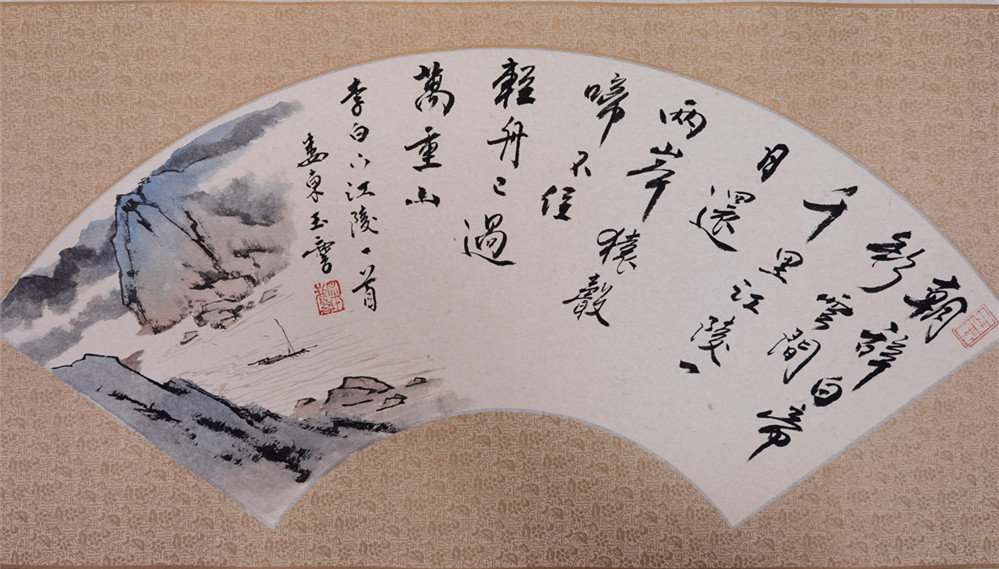 朝辭白帝
彩雲間
千里江陵一
日還
兩岸猿聲
啼不住
輕舟已過
萬重山
李白下江陵一首
婁東玉